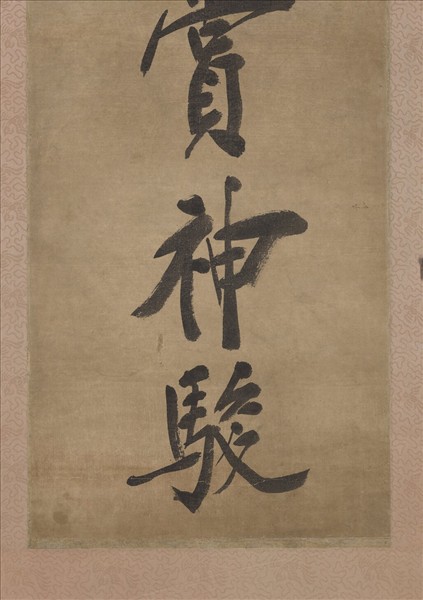 賞神駿